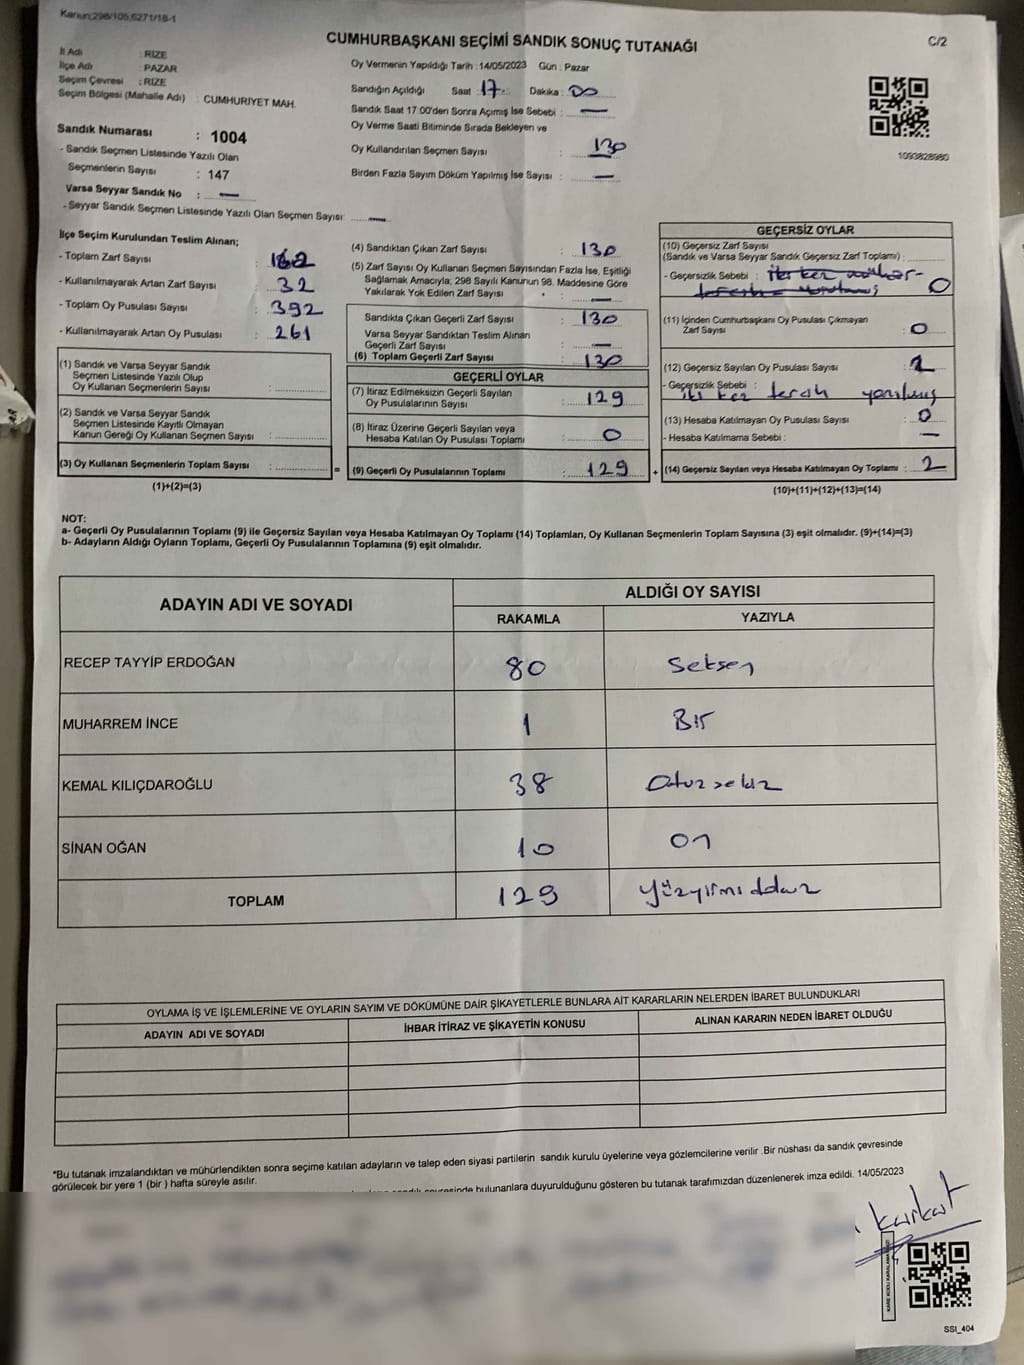 Kanun;298/105,6271/18-1
CUMHURBAŞKANI SEÇİMİ SANDIK SONUÇ TUTANAĞI
C/2
İl Adı : RİZE
İlçe Adı : PAZAR
Seçim Çevresi : RİZE
Seçim Bölgesi (Mahalle Adı) : CUMHURİYET MAH.
Sandık Numarası : 1004
- Sandık Seçmen Listesinde Yazılı Olan
Seçmenlerin Sayısı : 147
Varsa Seyyar Sandık No : —
- Seyyar Sandık Seçmen Listesinde Yazılı Olan Seçmen Sayısı: —
Oy Vermenin Yapıldığı Tarih :14/05/2023 Gün : Pazar
Sandığın Açıldığı Saat : 17 Dakika : 00
Sandık Saat 17:00'den Sonra Açımış İse Sebebi : —
Oy Verme Saati Bitiminde Sırada Bekleyen ve
Oy Kullandırılan Seçmen Sayısı : 130
Birden Fazla Sayım Döküm Yapılmış İse Sayısı : —
1093828980
İlçe Seçim Kurulundan Teslim Alınan;
- Toplam Zarf Sayısı : 162
- Kullanılmayarak Artan Zarf Sayısı : 32
- Toplam Oy Pusulası Sayısı : 392
- Kullanılmayarak Artan Oy Pusulası : 261
(1) Sandık ve Varsa Seyyar Sandık
Seçmen Listesinde Yazılı Olup
Oy Kullanan Seçmenlerin Sayısı :
(2) Sandık ve Varsa Seyyar Sandık
Seçmen Listesinde Kayıtlı Olmayan
Kanun Gereği Oy Kullanan Seçmen Sayısı :
(3) Oy Kullanan Seçmenlerin Toplam Sayısı : =
(1)+(2)=(3)
(4) Sandıktan Çıkan Zarf Sayısı : 130
(5) Zarf Sayısı Oy Kullanan Seçmen Sayısından Fazla İse, Eşitliği
Sağlamak Amacıyla; 298 Sayılı Kanunun 98. Maddesine Göre
Yakılarak Yok Edilen Zarf Sayısı : —
Sandıkta Çıkan Geçerli Zarf Sayısı : 130
Varsa Seyyar Sandıktan Teslim Alınan
Geçerli Zarf Sayısı : —
(6) Toplam Geçerli Zarf Sayısı : 130
GEÇERLİ OYLAR
(7) İtiraz Edilmeksizin Geçerli Sayılan
Oy Pusulalarının Sayısı : 129
(8) İtiraz Üzerine Geçerli Sayılan veya
Hesaba Katılan Oy Pusulası Toplamı : 0
(9) Geçerli Oy Pusulalarının Toplamı : 129 +
GEÇERSİZ OYLAR
(10) Geçersiz Zarf Sayısı
(Sandık ve Varsa Seyyar Sandık Geçersiz Zarf Toplamı) :
- Geçersizlik Sebebi : 0
(11) İçinden Cumhurbaşkanı Oy Pusulası Çıkmayan
Zarf Sayısı : 0
(12) Geçersiz Sayılan Oy Pusulası Sayısı :
- Geçersizlik Sebebi : iki kez tercih yapılmış
(13) Hesaba Katılmayan Oy Pusulası Sayısı : 0
- Hesaba Katılmama Sebebi : —
(14) Geçersiz Sayılan veya Hesaba Katılmayan Oy Toplamı : 2
(10)+(11)+(12)+(13)=(14)
NOT:
a- Geçerli Oy Pusulalarının Toplamı (9) ile Geçersiz Sayılan veya Hesaba Katılmayan Oy Toplamı (14) Toplamları, Oy Kullanan Seçmenlerin Toplam Sayısına (3) eşit olmalıdır. (9)+(14)=(3)
b- Adayların Aldığı Oyların Toplamı, Geçerli Oy Pusulalarının Toplamına (9) eşit olmalıdır.
ADAYIN ADI VE SOYADI
ALDIĞI OY SAYISI
RAKAMLA YAZIYLA
RECEP TAYYİP ERDOĞAN 80 Seksen
MUHARREM İNCE 1 Bir
KEMAL KILIÇDAROĞLU 38 Otuzsekiz
SİNAN OĞAN 10 On
TOPLAM 129 yüzyirmidokuz
OYLAMA İŞ VE İŞLEMLERİNE VE OYLARIN SAYIM VE DÖKÜMÜNE DAİR ŞİKAYETLERLE BUNLARA AİT KARARLARIN NELERDEN İBARET BULUNDUKLARI
ADAYIN ADI VE SOYADI İHBAR İTİRAZ VE ŞİKAYETİN KONUSU ALINAN KARARIN NEDEN İBARET OLDUĞU
"Bu tutanak imzalandıktan ve mühürlendikten sonra seçime katılan adayların ve talep eden siyasi partilerin sandık kurulu üyelerine veya gözlemcilerine verilir .Bir nüshası da sandık çevresinde
görülecek bir yere 1 (bir ) hafta süreyle asılır.
sandık çevresinde bulunanlara duyurulduğunu gösteren bu tutanak tarafımızdan düzenlenerek imza edildi. 14/05/2023
SSI_404